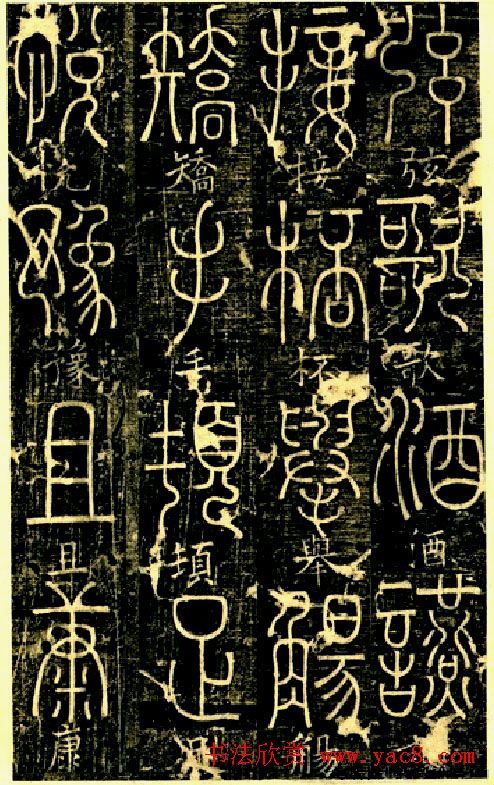 弦歌酒讌
接杯舉觴
矯手頓足
悅豫且康
书法欣赏 www.yac8.com